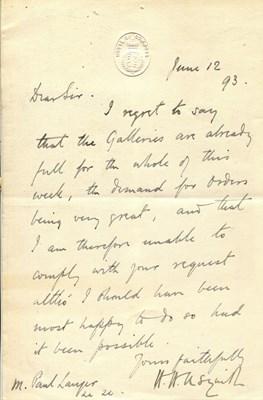 HOUSE OF COMMONS
June 12
93.
Dear Sir.
I regret to say
that the Galleries are already
full for the whole of this
week, the demand for orders
being very great, and that
I am therefore unable to
comply with your request
altho' I should have been
most happy to do so had
it been possible
Yours faithfully
H. H. Asquith
M. Paul Langer